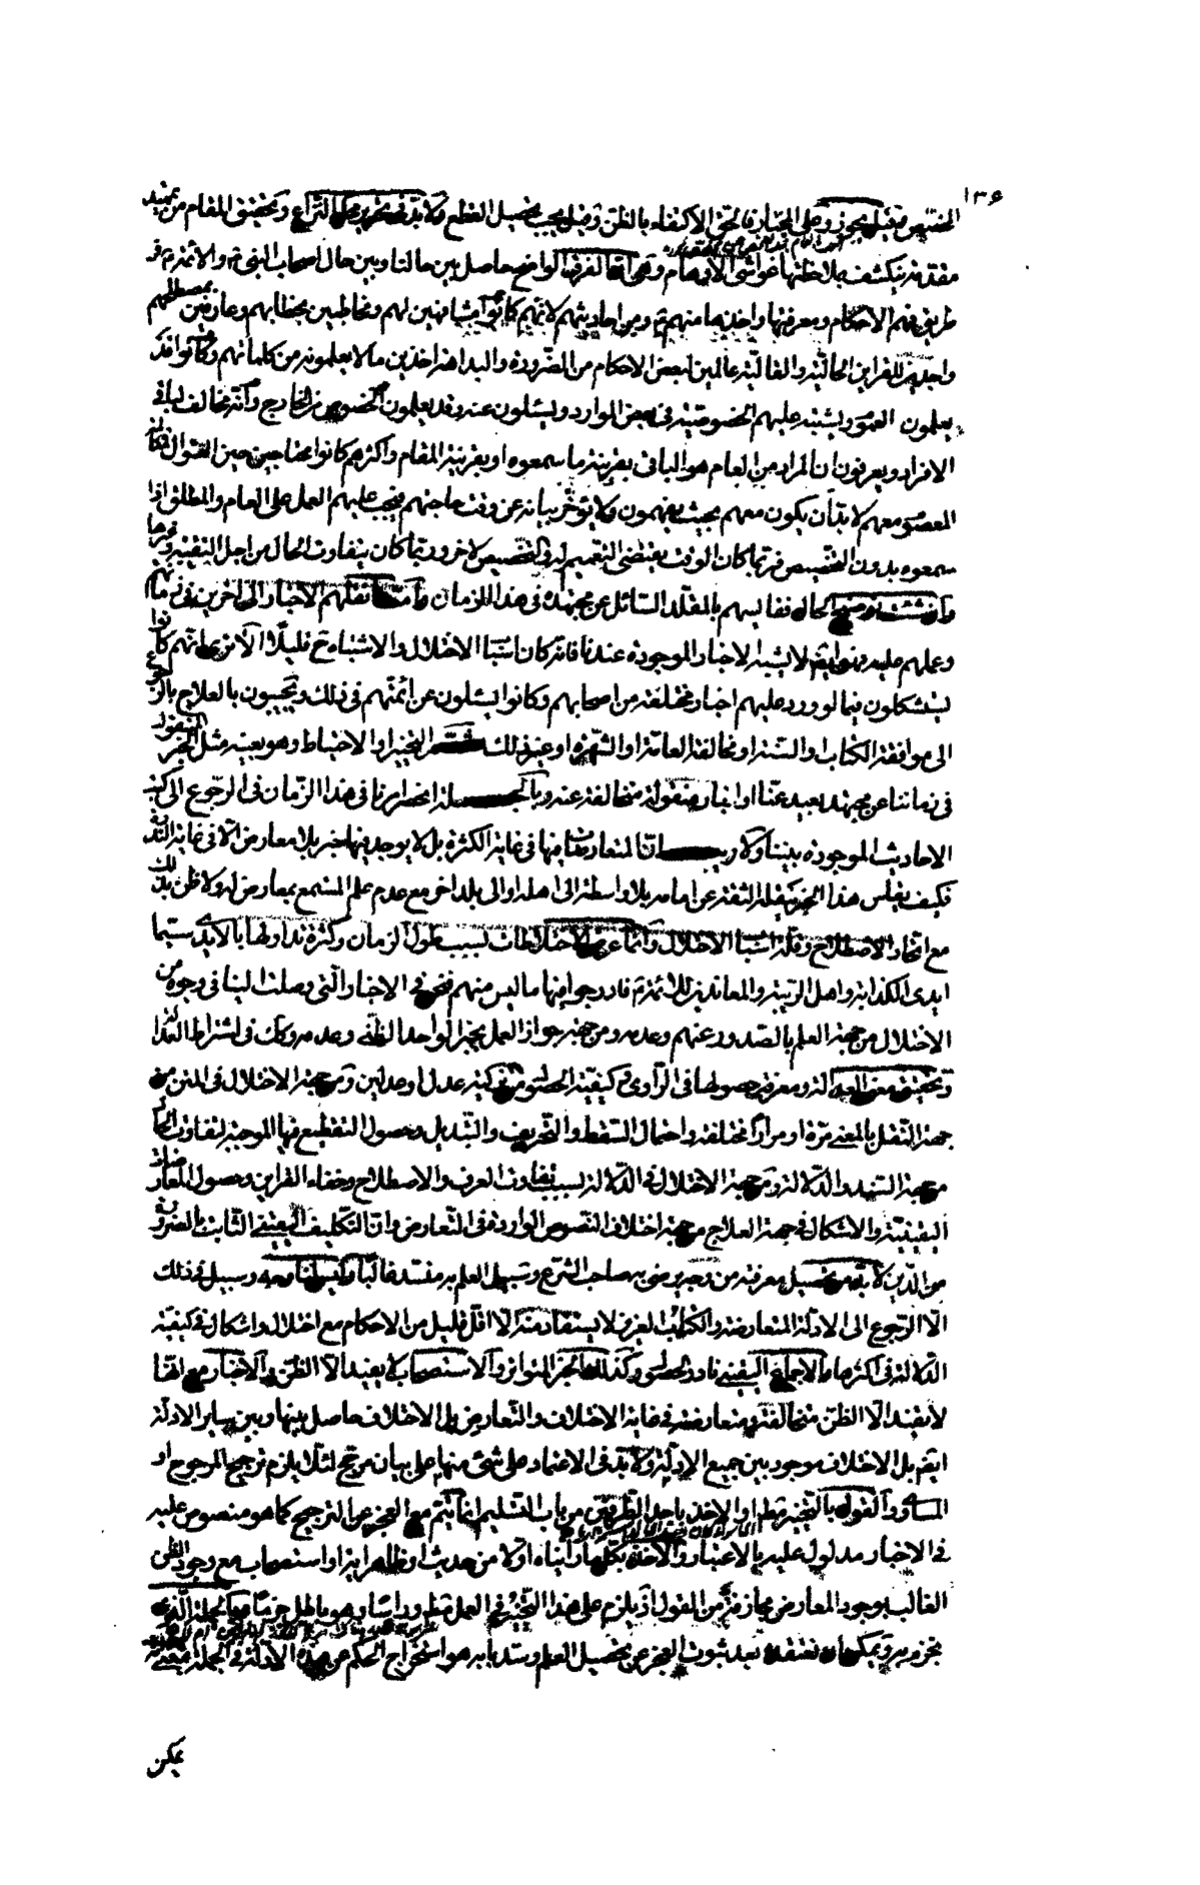 ١٣٥
المخصص فقيل يجوز وعلى المختار فالحق الاكتفاء بالظن وقيل يجب تحصيل القطع ولا بد في تحرير محل النزاع وتحقيق المقام من تمهيد
مقدمة ينكشف بملاحظتها غواشي الأوهام وهي ان الفرق الواضح حاصل بين حالنا وبين حال اصحاب النبي والأئمة ع في
طريق فهم الاحكام ومعرفتها واخذها منهم ع ومن احاديثهم لانهم كانوا مشافهين لهم ومخاطبين بخطابهم وعارفين بمصطلحهم
واجدين للقراين الحالية والمقالية عالمين لبعض الاحكام من الضرورة والبداهة اخذين ما لا يعلمونه من كلماتهم وكانوا قد
يعلمون العموم ويشتبه عليهم الخصوصية في بعض الموارد ويسئلون عنه وقد يعلمون المخصوص من الخارج وانه مخالف لباقي
الافراد ويعرفون ان المراد من العام هو الباقي بقرينة ما سمعوه او بقرينة المقام واكثرهم كانوا محتاجين حين السؤال فكان
المعصوم معهم لا بد أن يكون معهم بحيث يفهمون ولا يؤخر بيانه عن وقت حاجتهم فيجب عليهم العمل على العام والمطلق اذا
سمعوه بدون التخصيص فربما كان الوقت يقتضي التعميم له والتخصيص لاخر وربما كان يتفاوت الحال من اجل التقية وغيرها
وان شئت توضيح الحال فقايسهم بالمقلد السائل عن مجتهده في هذا الزمان وأما نقلهم الاخبار الى اخرين في زمانهم
وعلمهم عليه فهو ايضا لا يشبه الاخبار الموجودة عندنا فانه كان اسباب الاختلال والاشتباه ح قليلا الا ترى انهم كانوا
يستشكلون فيما لو ورد عليهم اخبار مختلفة من اصحابهم وكانوا يسئلون عن أئمتهم في ذلك ويجيبون بالعلاج بالرجوع
الى موافقة الكتاب والسنة او مخالفة العامة او الشهرة او غير ذلك ثم التخيير او الاحتياط وهو بعينه مثل الخبر المنقول
في زماننا عن مجتهد بعيد عنا او اخبار منقولة متخالفة عنه وبالجملة انحصار امرنا في هذا الزمان في الرجوع الى كتب
الاحاديث الموجودة بيننا ولا ريب ان المتعارضات فيها في غاية الكثرة بل لا يوجد فيها خبر بلا معارض الا في غاية الندرة
فكيف يقاس هذا الخبر بنقلة الثقة عن امامه بلا واسطة الى اهله او الى بلد اخر مع عدم علم المستمع بمعارض له ولا ظن بذلك
مع اتحاد الاصطلاح وقلة اسباب الاختلال وانما عرض الاختلالات بسبب طول الزمان وكثرة تداولها بالأيدي سيما
ايدي الكذابة واهل الريبة والمعاندين للائمة ع فادرجوا فيها ما ليس منهم فنحن في الاخبار التي وصلت الينا في وجوه من
الاختلال من جهة العلم بالصدور عنهم وعدمه ومن جهة جواز العمل بخبر الواحد الظني وعدمه وكذا في اشتراط العدالة
وتحقيق معنى العدالة ومعرفة حصولها في الراوي وكيفية الحصول من كيفية عدل او عدلين ومن جهة الاختلال في المتن من
جهة النقل بالمعنى مرة او مرارا مختلفة واحتمال السقط والتحريف والتبديل وحصول التقطيع فيها الموجبة لتفاوت الحال
من جهة السند والدلالة ومن جهة الاختلال في الدلالة بسبب تفاوت العرف والاصطلاح وخفاء القراين وحصول المعارضات
اليقينية والاشكال في جهة العلاج من جهة اختلاف النصوص الواردة في التعارض وان التكليف اليقيني الثابت بالضرورة
من الدين لا بد من تحصيل معرفته من وجه يرضى به صاحب الشرع وسبيل العلم به منسد غالبا وليس لنا وجه وسبيل في ذلك
الا الرجوع الى الادلة المتعارضة والكتاب العزيز لا يستفاد منه الا اقل قليل من الاحكام مع اختلال واشكال في كيفية
الدلالة في اكثرها والاجماع اليقيني نادر الحصول وكذلك الخبر المتواتر والاستصحاب لا يفيد الا الظن والاخبار مع انها
لا تفيد الا الظن متخالفة ومتعارضة في غاية الاختلاف والتعارض بل الاختلاف حاصل بينها وبين ساير الادلة
ايضا بل الاختلاف موجود بين جميع الادلة ولا بد في الاعتماد على شيء منها على بيان مرجح لئلا يلزم ترجيح المرجوح او
المساوي والقول بالتخيير مطلقا او الاخذ باحد الطرفين من باب التسليم انما يتم مع العجز عن الترجيح كما هو منصوص عليه
في الاخبار مدلول عليه بالاعتبار والاخذ بكل ما رايناه اولا من حديث او ظاهر اية او استصحاب مع وجود الظن
الغالب بوجود المعارض مجازفة من القول اذ يلزم على هذا التخيير في العمل مطلقا وراسا وهو باطل جزما فبالجملة الذي
نجزم به ويمكن ان نعتقده بعد ثبوت العجز عن تحصيل العلم وسد بابه هو استخراج الحكم من هذه الادلة في الجملة بمعنى انه
يمكن